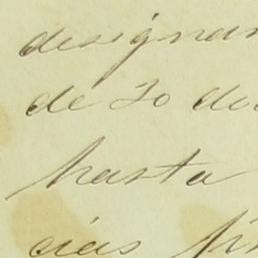 designan
de 20 do
hasta
cias